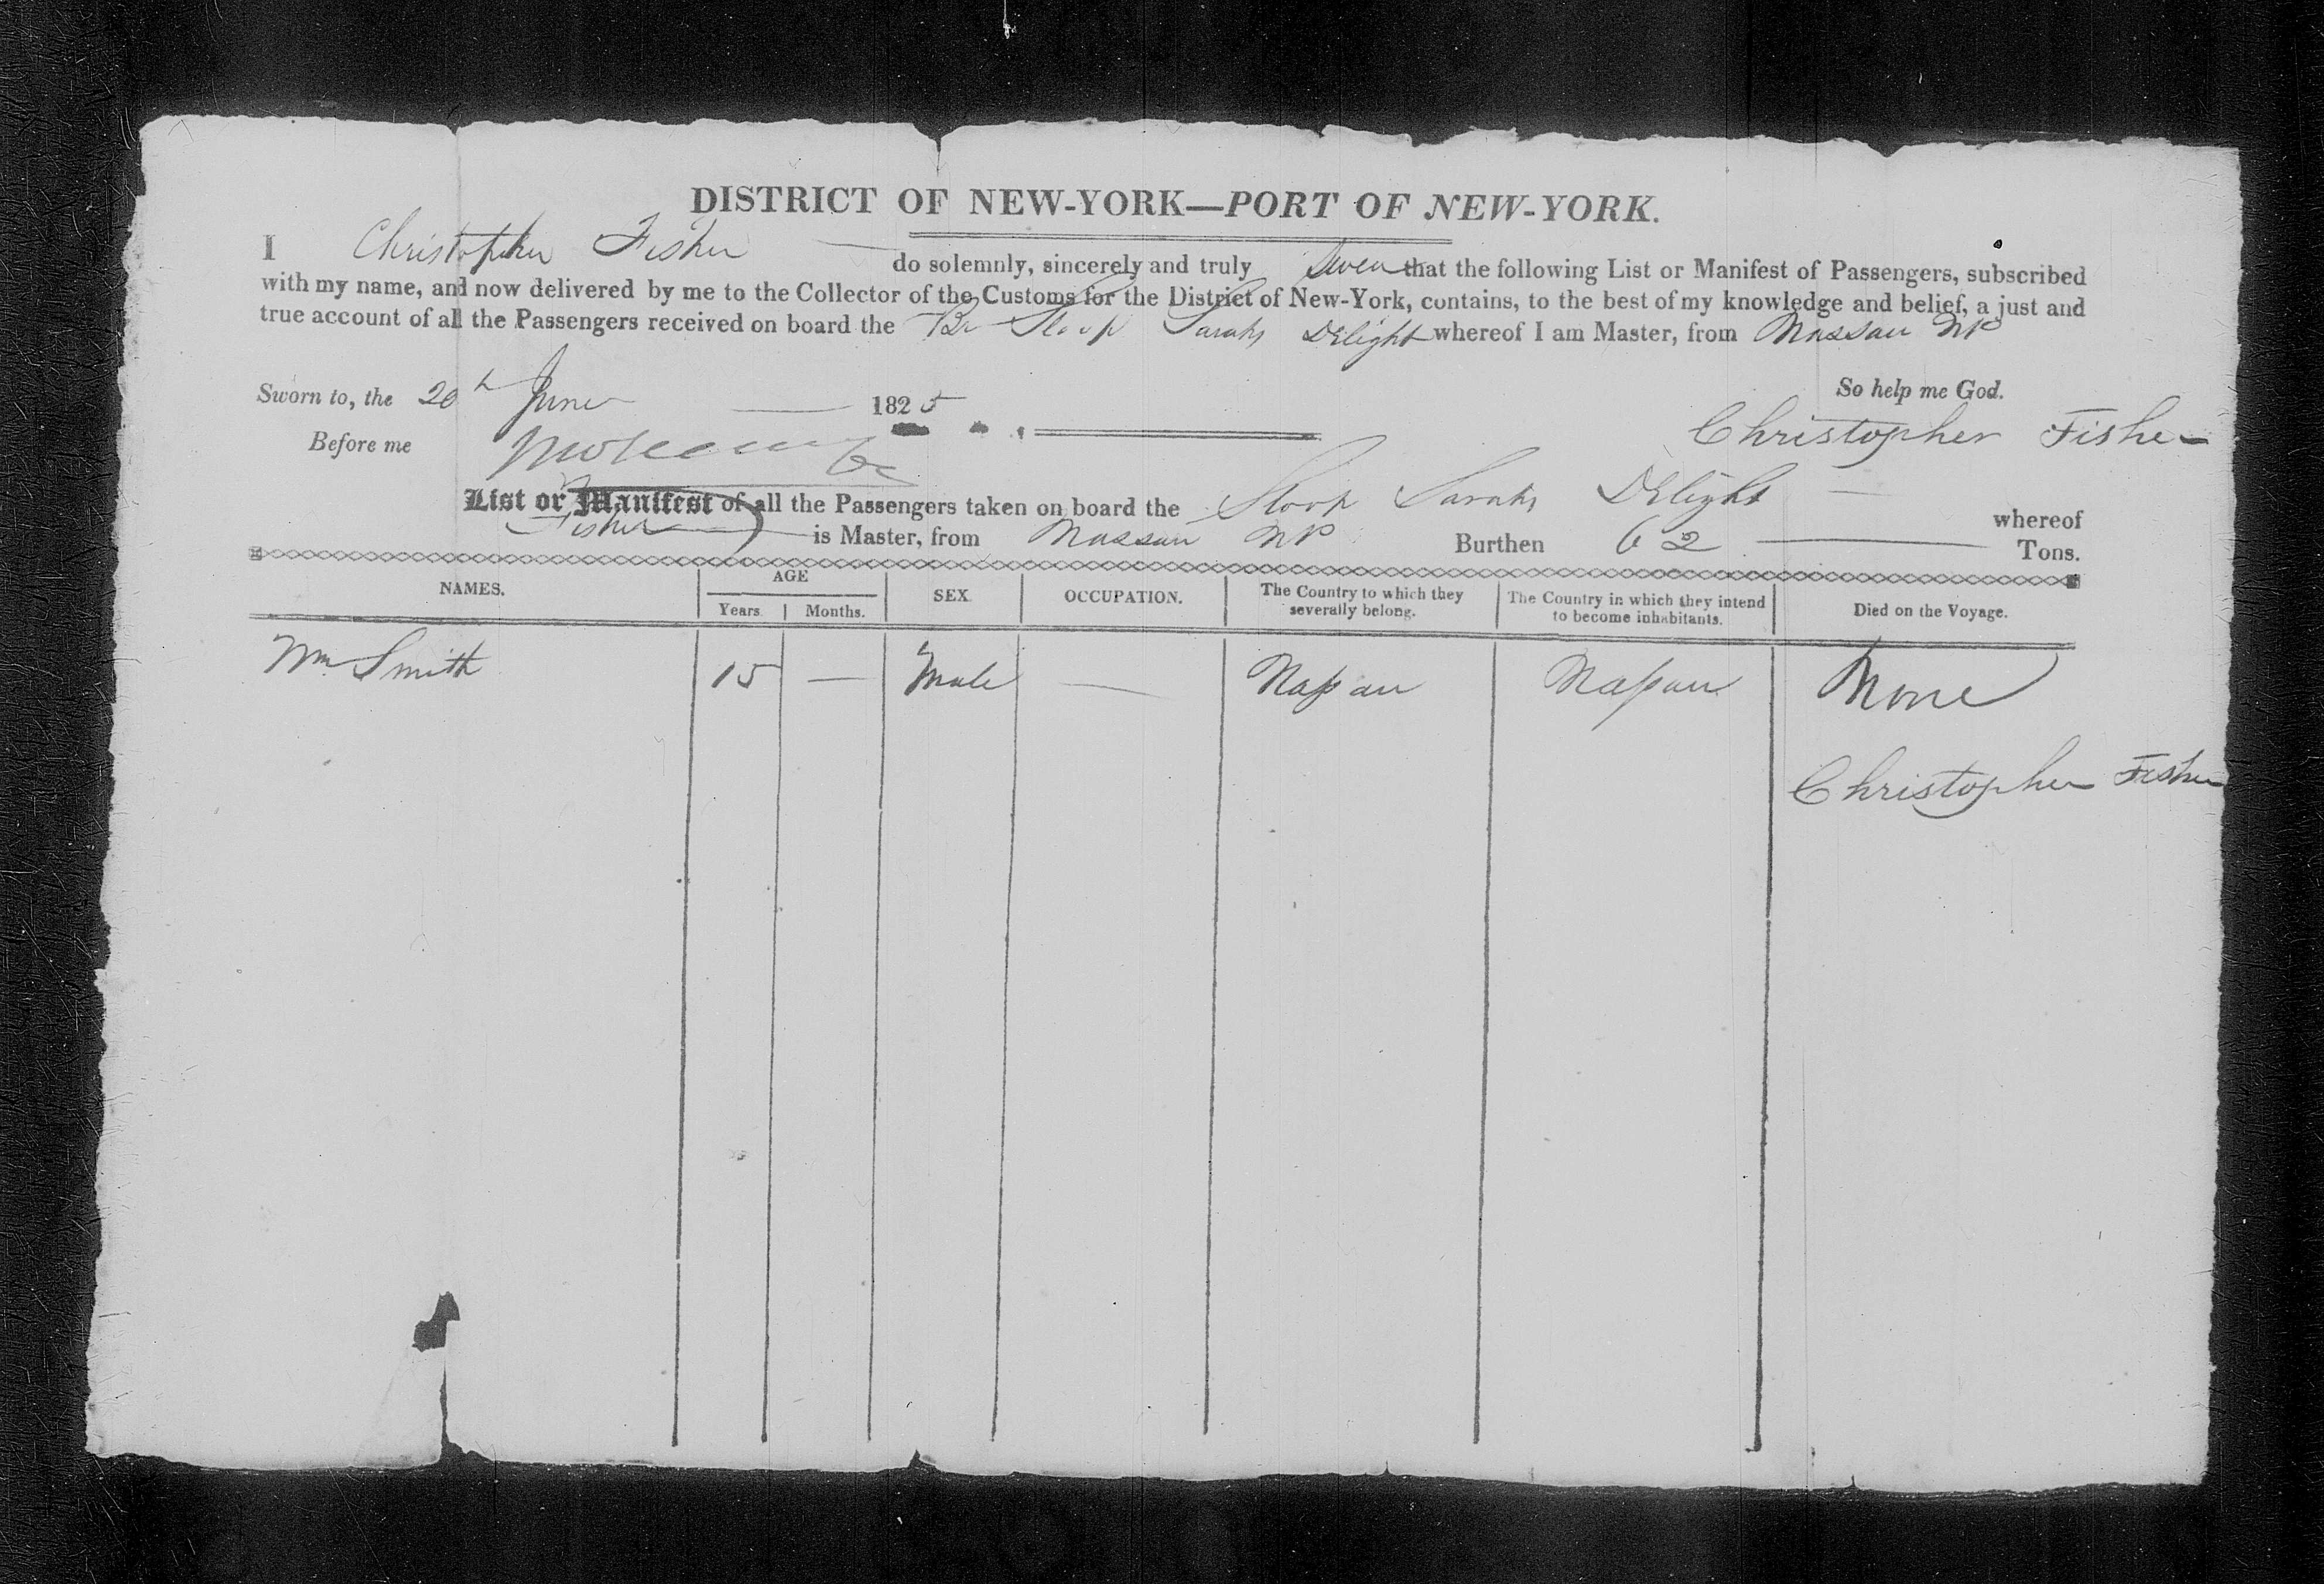 DISTRICT OF NEW-YORK—PORT OF NEW-YORK.
I Christopher Fisher do solemnly, sincerely and truly Swear that the following List or Manifest of Passengers, subscribed
with my name, and now delivered by me to the Collector of the Customs for the District of New-York, contains, to the best of my knowledge and belief, a just and
true account of all the Passengers received on board the Br Sloop Sarahs Delight whereof I am Master, from Nassau NP
So help me God.
Sworn to, the 20th June 1825
Christopher Fisher
Before me
List or Manifest of all the Passengers taken on board the Sloop Sarahs Delight whereof
Fisher is Master, from Nassau NP Burthen 62 Tons.
NAMES. AGE Years. Months. SEX. OCCUPATION. The Country to which they severally belong. The Country in which they intend to become inhabitants. Died on the Voyage.
Wm Smith 15 — Male — Nassau Nassau None
Christopher Fisher